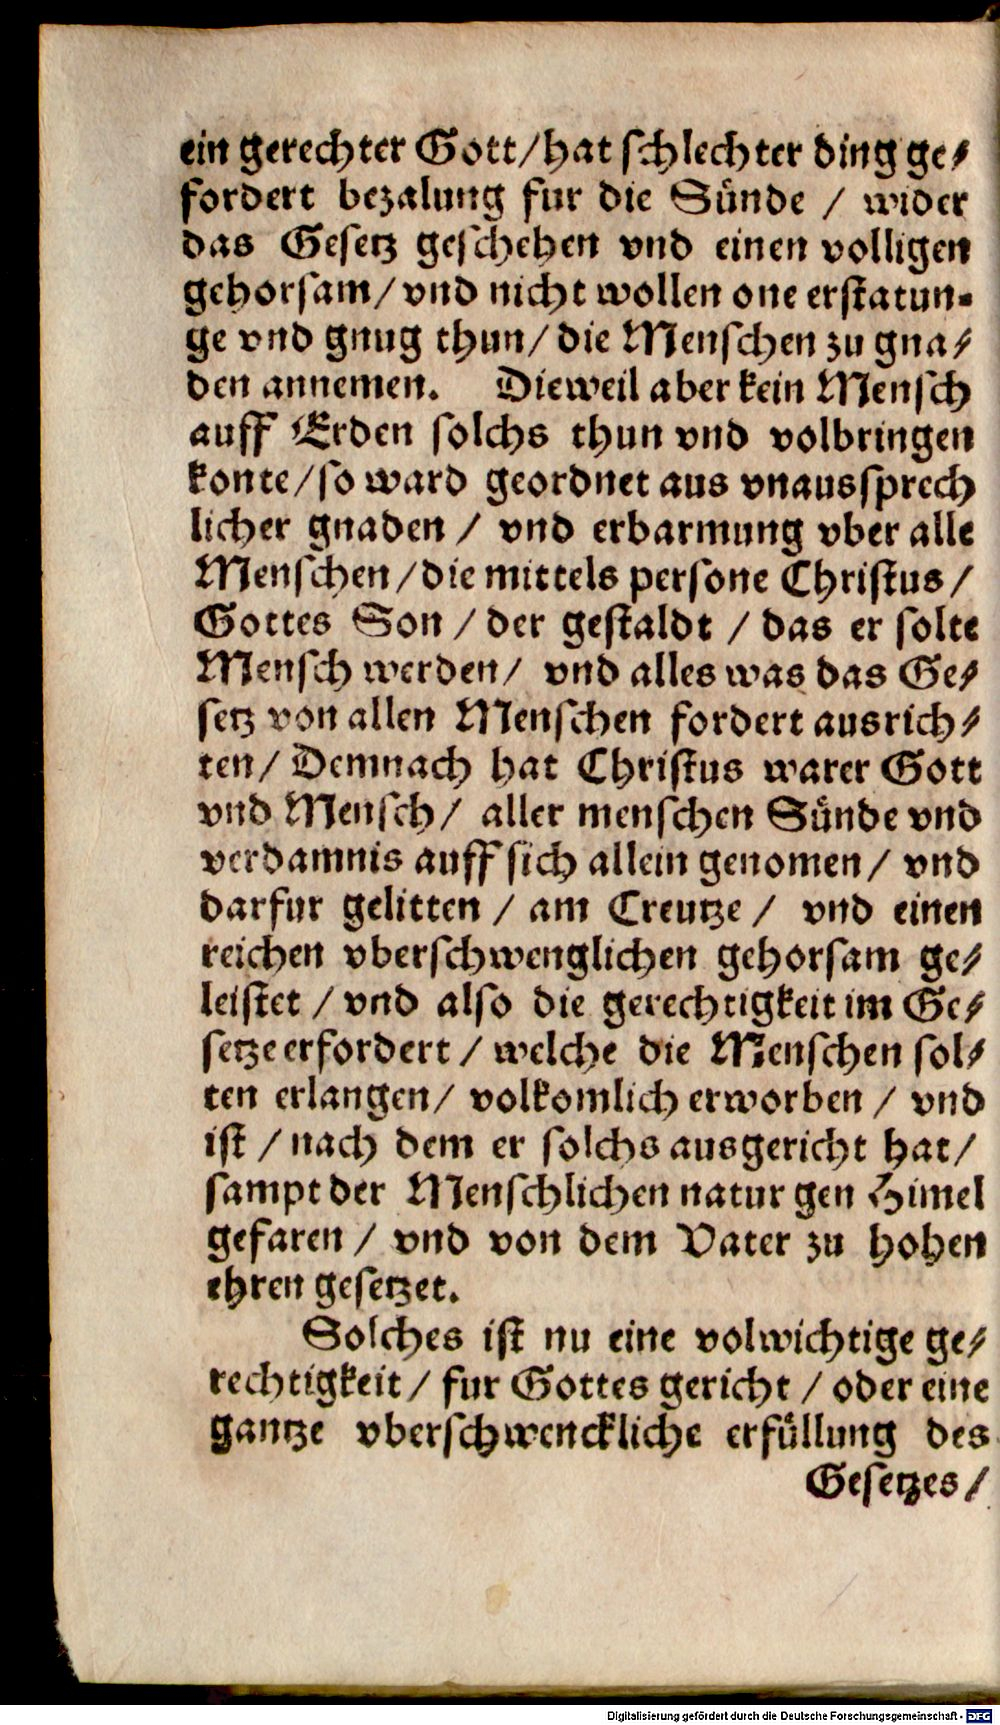 ein gerechter Gott/hat schlechter ding ge⸗
fordert bezalung fur die Sünde / wider
das Gesetz geschehen vnd einen volligen
gehorsam/ vnd nicht wollen one erstatun⸗
ge vnd gnug thun/ die Menschen zu gna⸗
den annemen. Dieweil aber kein Mensch
auff Erden solchs thun vnd volbringen
konte/so ward geordnet aus vnaussprech
licher gnaden / vnd erbarmung vber alle
Menschen/die mittels persone Christus/
Gottes Son / der gestaldt / das er solte
Mensch werden/ vnd alles was das Ge⸗
setz von allen Menschen fordert ausrich⸗
ten/ Demnach hat Christus warer Gott
vnd Mensch/ aller menschen Sünde vnd
verdamnis auff sich allein genomen/ vnd
darfur gelitten / am Creutze / vnd einen
reichen vberschwenglichen gehorsam ge⸗
leistet / vnd also die gerechtigkeit im Ge⸗
setze erfordert / welche die Menschen sol⸗
ten erlangen/ volkomlich erworben / vnd
ist / nach dem er solchs ausgericht hat/
sampt der Menschlichen natur gen Himel
gefaren / vnd von dem Vater zu hohen
ehren gesetzet.
Solches ist nu eine volwichtige ge⸗
rechtigkeit/ fur Gottes gericht / oder eine
gantze vberschwenckliche erfüllung des
Gesetzes/
Digitalisierung gefördert durch die Deutsche Forschungsgemeinschaft - DFG